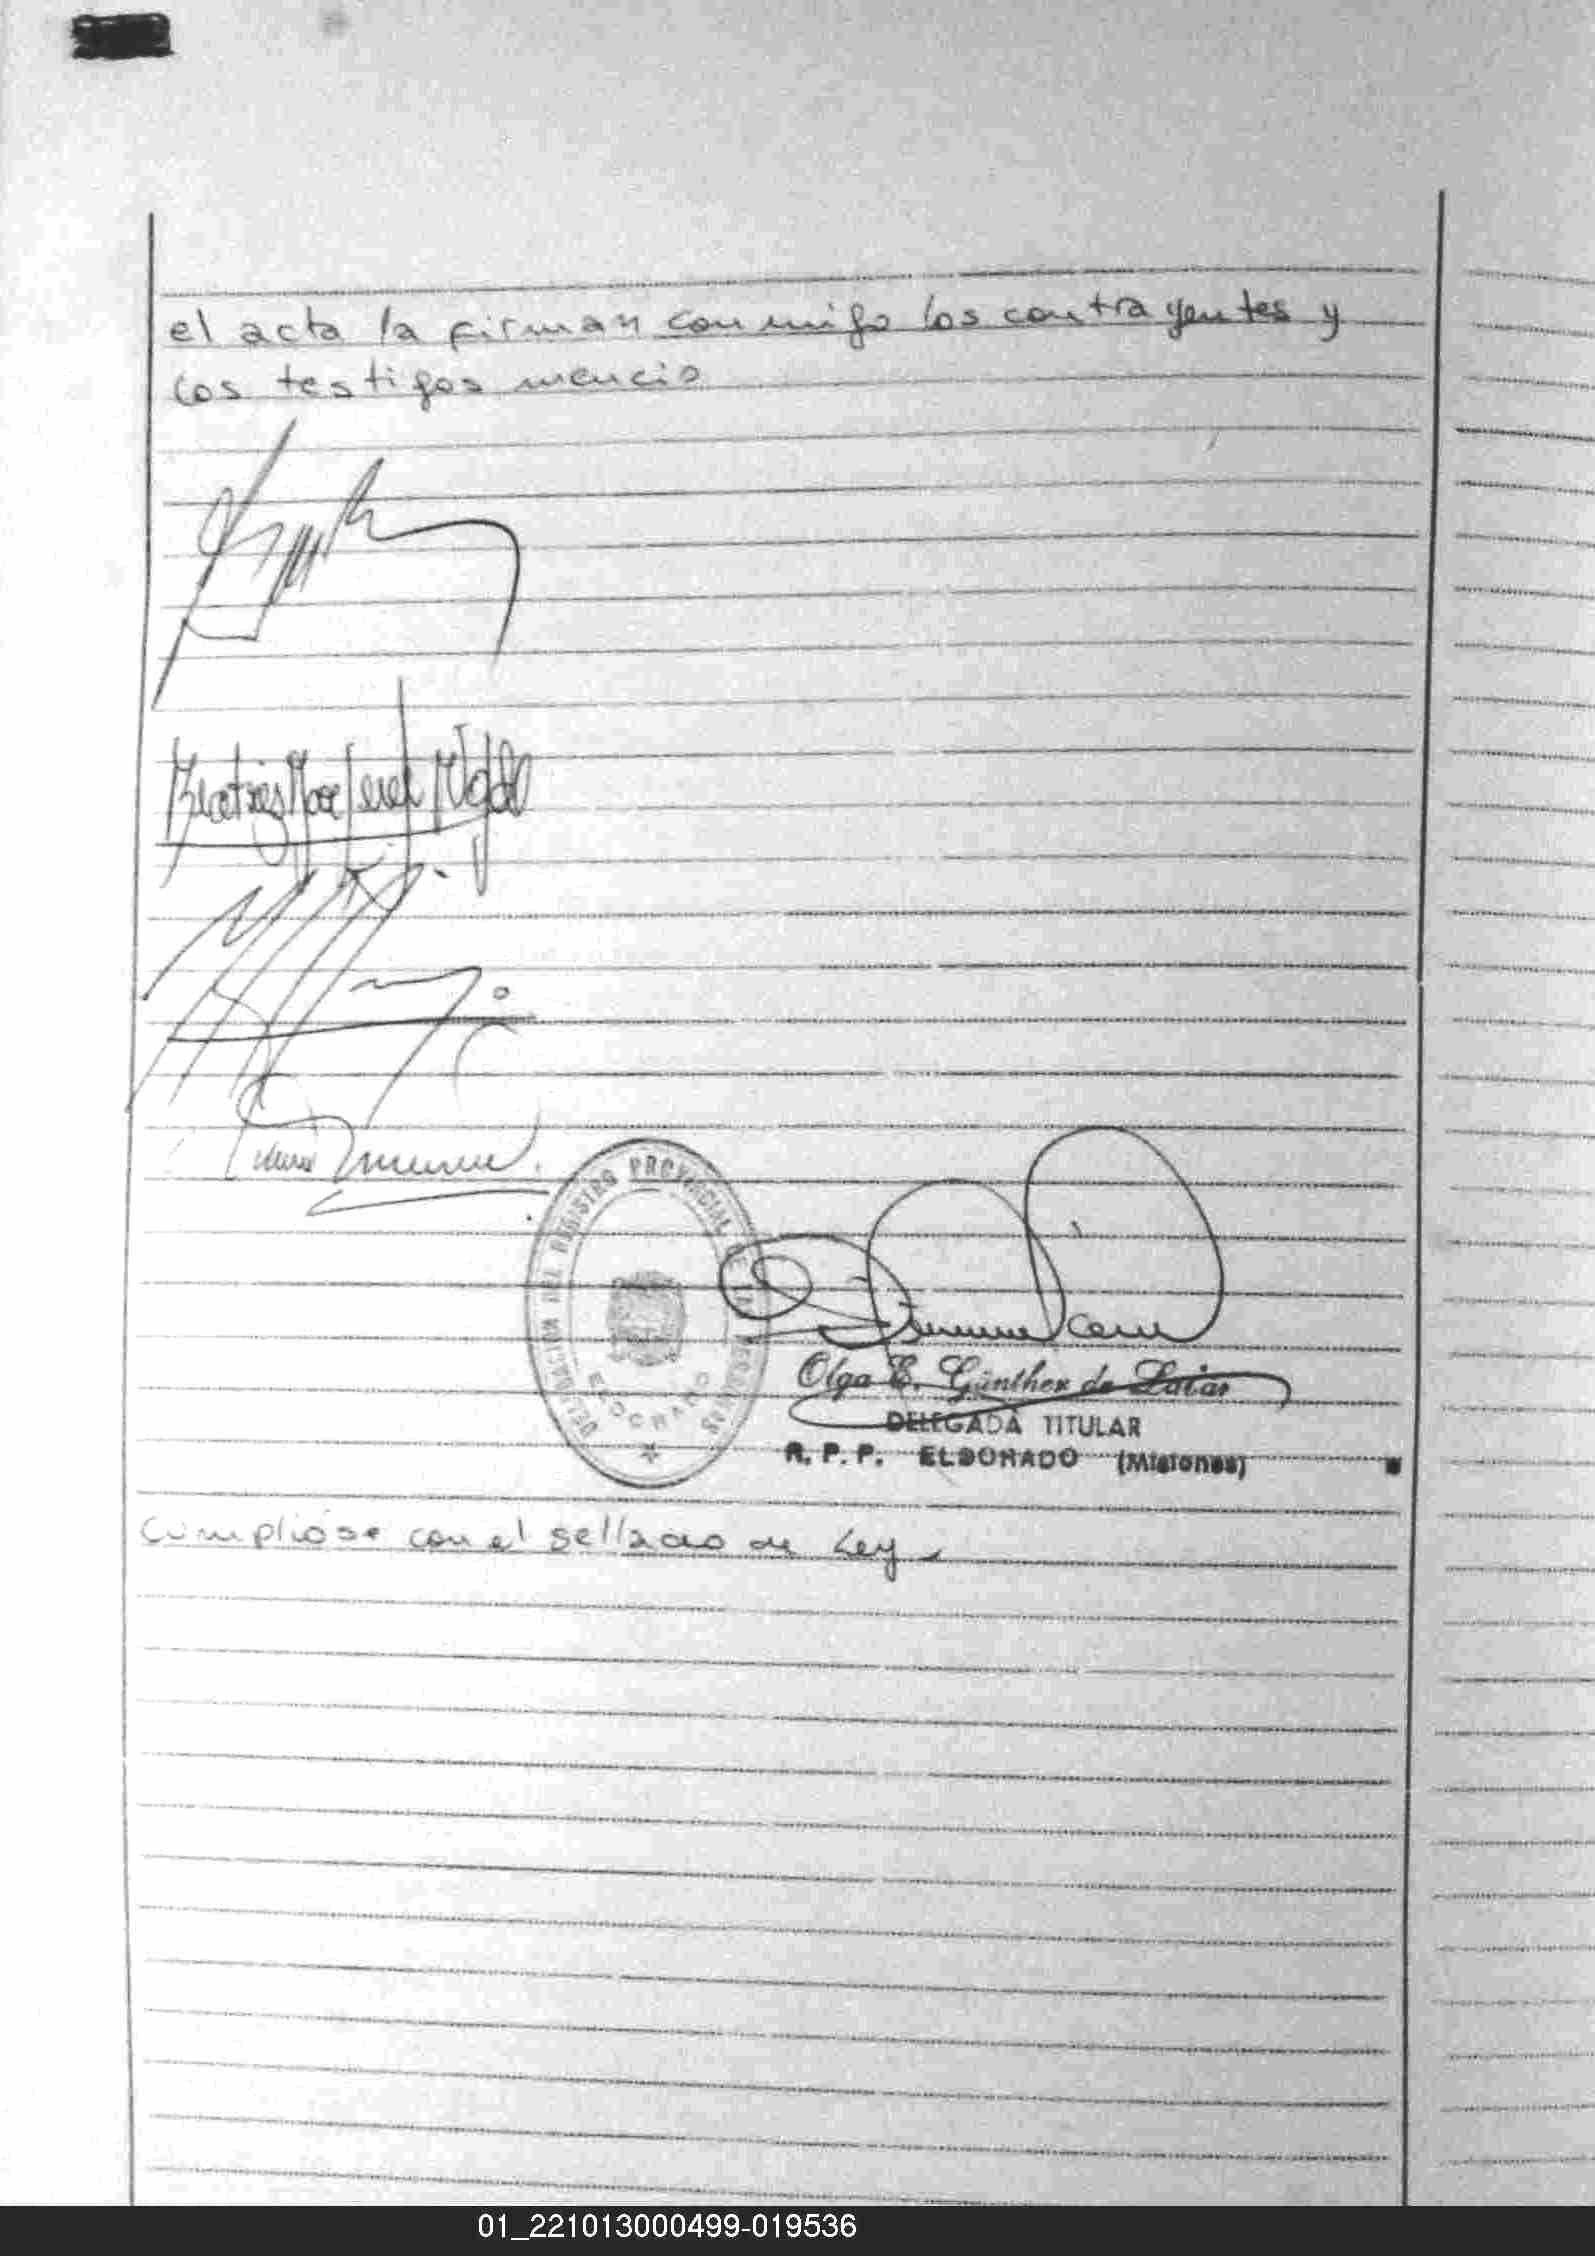 el acta la firman conmigo los contrayentes y
los testigos mencio
DELEGACION DEL REGISTRO PROVINCIAL DE LAS PERSONAS
ELDORADO
Olga E. Günther de
DELEGADA TITULAR
R. P. P. ELDORADO (Misiones)
Cumplióse con el sellado de Ley.
01_221013000499-019536